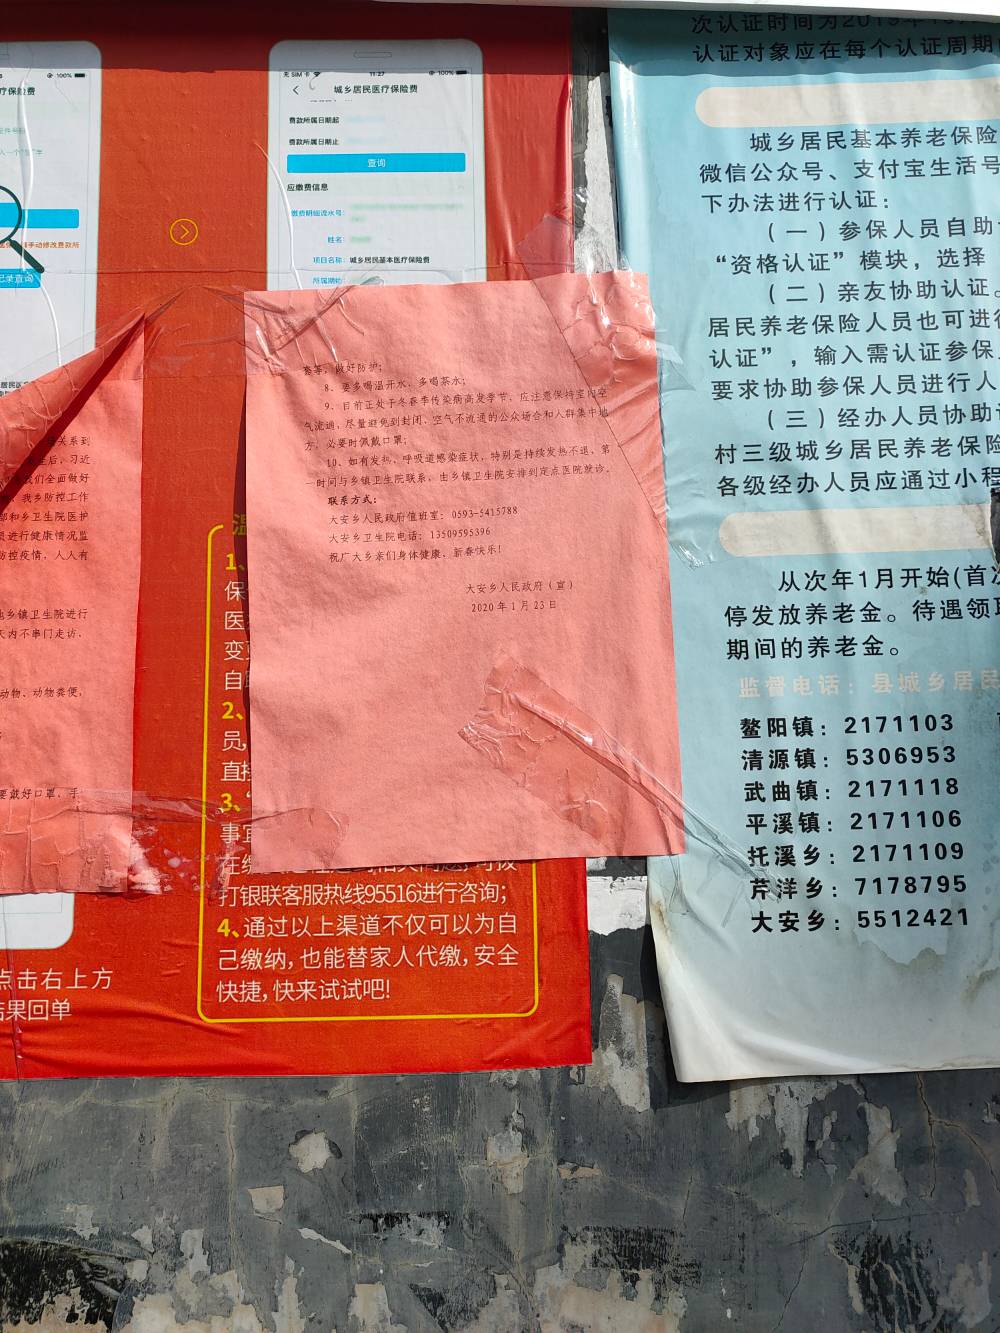 100%
疗保险费
无 SIM 卡
11:27
100%
城乡居民医疗保险费
费款所属日期起
费款所属日期止
查询
应缴费信息
缴费明细流水号:
姓名:
项目名称: 城乡居民基本医疗保险费
所属期
手动修改费款所
记录查询
居民医
关系到
后,习近
们全面做好
我乡防控工作
部和乡卫生院医护
员进行健康情况监
防控疫情,人人有
乡镇卫生院进行
天内不串门走访、
动物、动物粪便,
要戴好口罩、手
点击右上方
结果回单
等,做好防护;
8、要多喝温开水、多喝茶水;
9、目前正处于冬春季传染病高发季节,应注意保持室内空
气流通,尽量避免到封闭、空气不流通的公众场合和人群集中地
方,必要时佩戴口罩;
10、如有发热、呼吸道感染症状,特别是持续发热不退,第
一时间与乡镇卫生院联系,由乡镇卫生院安排到定点医院就诊。
联系方式:
大安乡人民政府值班室:0593-5415788
大安乡卫生院电话:13509595396
祝广大乡亲们身体健康、新春快乐!
大安乡人民政府(宣)
2020年1月23日
温
1、
保
医
变
自
2、
员,
直接
3、“
事宜
在缴
打银联客服热线95516进行咨询;
4、通过以上渠道不仅可以为自
己缴纳,也能替家人代缴,安全
快捷,快来试试吧!
次认证时间为2019年
认证对象应在每个认证周期
城乡居民基本养老保险
微信公众号、支付宝生活号
下办法进行认证:
(一)参保人员自助
“资格认证”模块,选择
(二)亲友协助认证。
居民养老保险人员也可进行
认证”,输入需认证参保
要求协助参保人员进行人
(三)经办人员协助
村三级城乡居民养老保险
各级经办人员应通过小程
从次年1月开始(首次
停发放养老金。待遇领取
期间的养老金。
监督电话:县城乡居民
鳌阳镇:2171103
清源镇:5306953
武曲镇:2171118
平溪镇:2171106
托溪乡:2171109
芹洋乡:7178795
大安乡:5512421